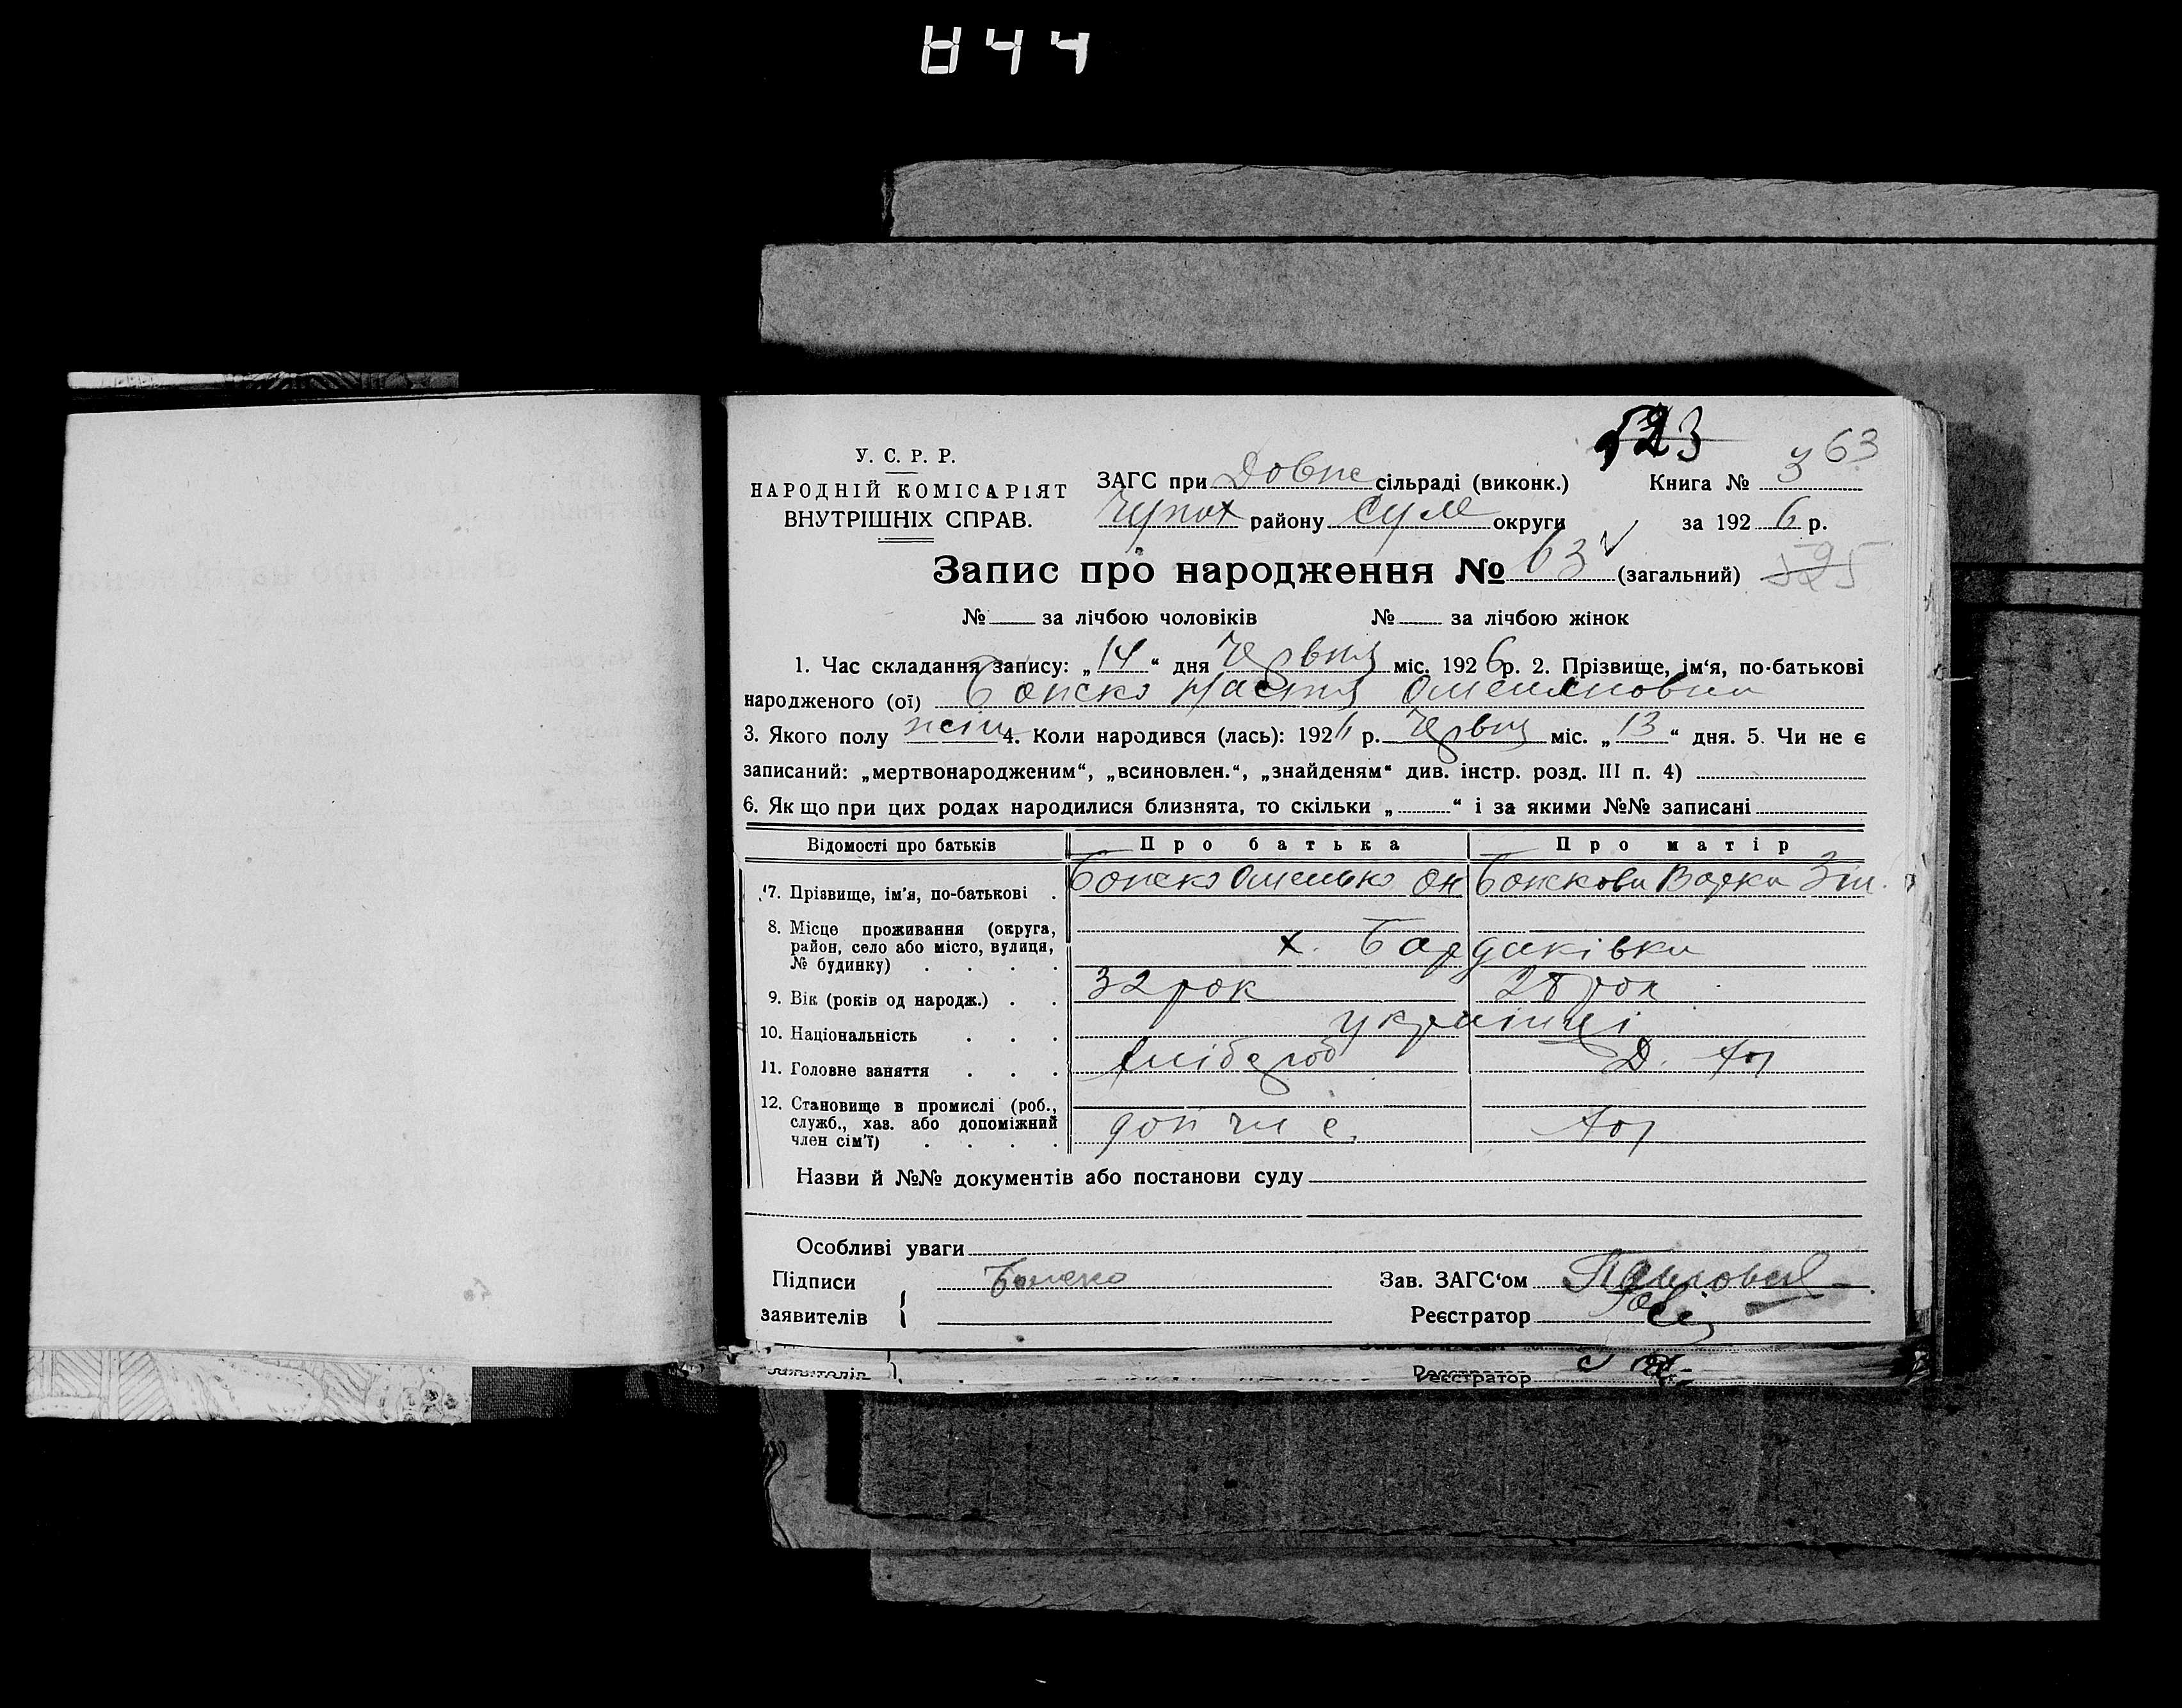 844
523
363
У. С. Р. Р.
НАРОДНІЙ КОМІСАРІЯТ
ВНУТРІШНІХ СПРАВ.
ЗАГС при Довже сільраді (виконк.) Книга № 3
Чупах району Сум округи за 1926 р.
Запис про народження № 63 (загальний) 525
№ за лічбою чоловіків № за лічбою жінок
1. Час складання запису: „14“ дня Червня міс. 1926 р. 2. Прізвище, ім‘я, по-батькові
народженого (ої) Божко Настя Омеляновна
3. Якого полу жін 4. Коли народився (лась): 1926 р. Червня міс. „13“ дня. 5. Чи не є
записаний: „мертвонародженим“, „всиновлен.“, „знайденям“ див. інстр. розд. III п. 4)
6. Як що при цих родах народилися близнята, то скільки „ “ і за якими №№ записані
Відомості про батьків Про батька Про матір
7. Прізвище, ім'я, по-батькові . Божко Омелько Он Божкова Варка Зін.
8. Місце проживання (округа,
район, село або місто, вулиця,
№ будинку) . . . . х. Бардаківка
9. Вік (років од народж.) . . 32 рок 28 рок
10. Національність . . . українці
11. Головне заняття . . . хлібороб Д. Хоз
12. Становище в промислі (роб.,
служб., хаз. або допоміжний
член сім'ї) . . . . доп чл с. Хоз
Назви й №№ документів або постанови суду
Особливі уваги
Підписи Божко Зав. ЗАГС‘ом
заявителів { Реєстратор
заявителів } Реєстратор